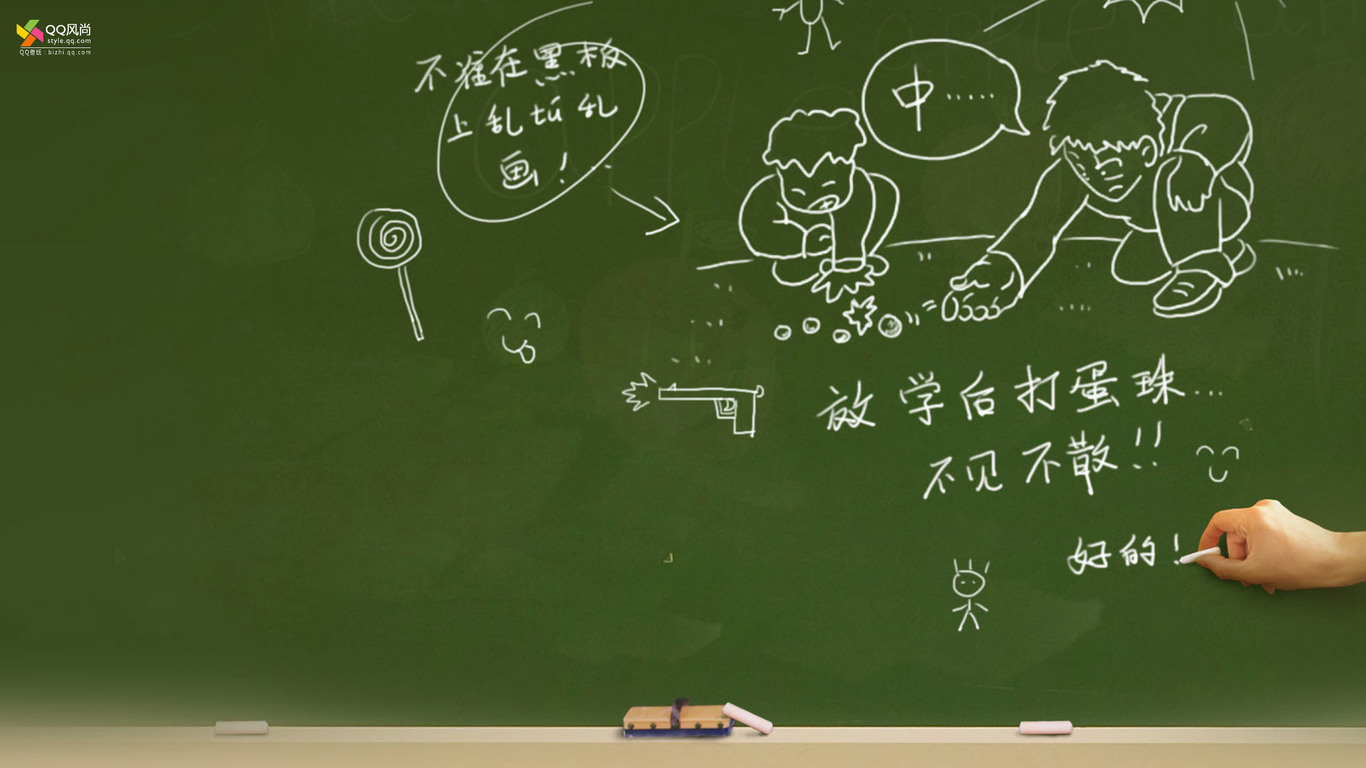 QQ风尚
style.qq.com
QQ壁纸：bizhi.qq.com
不准在黑板
上乱tú乱
画！
中……
放学后打蛋珠…
不见不散！！
好的！